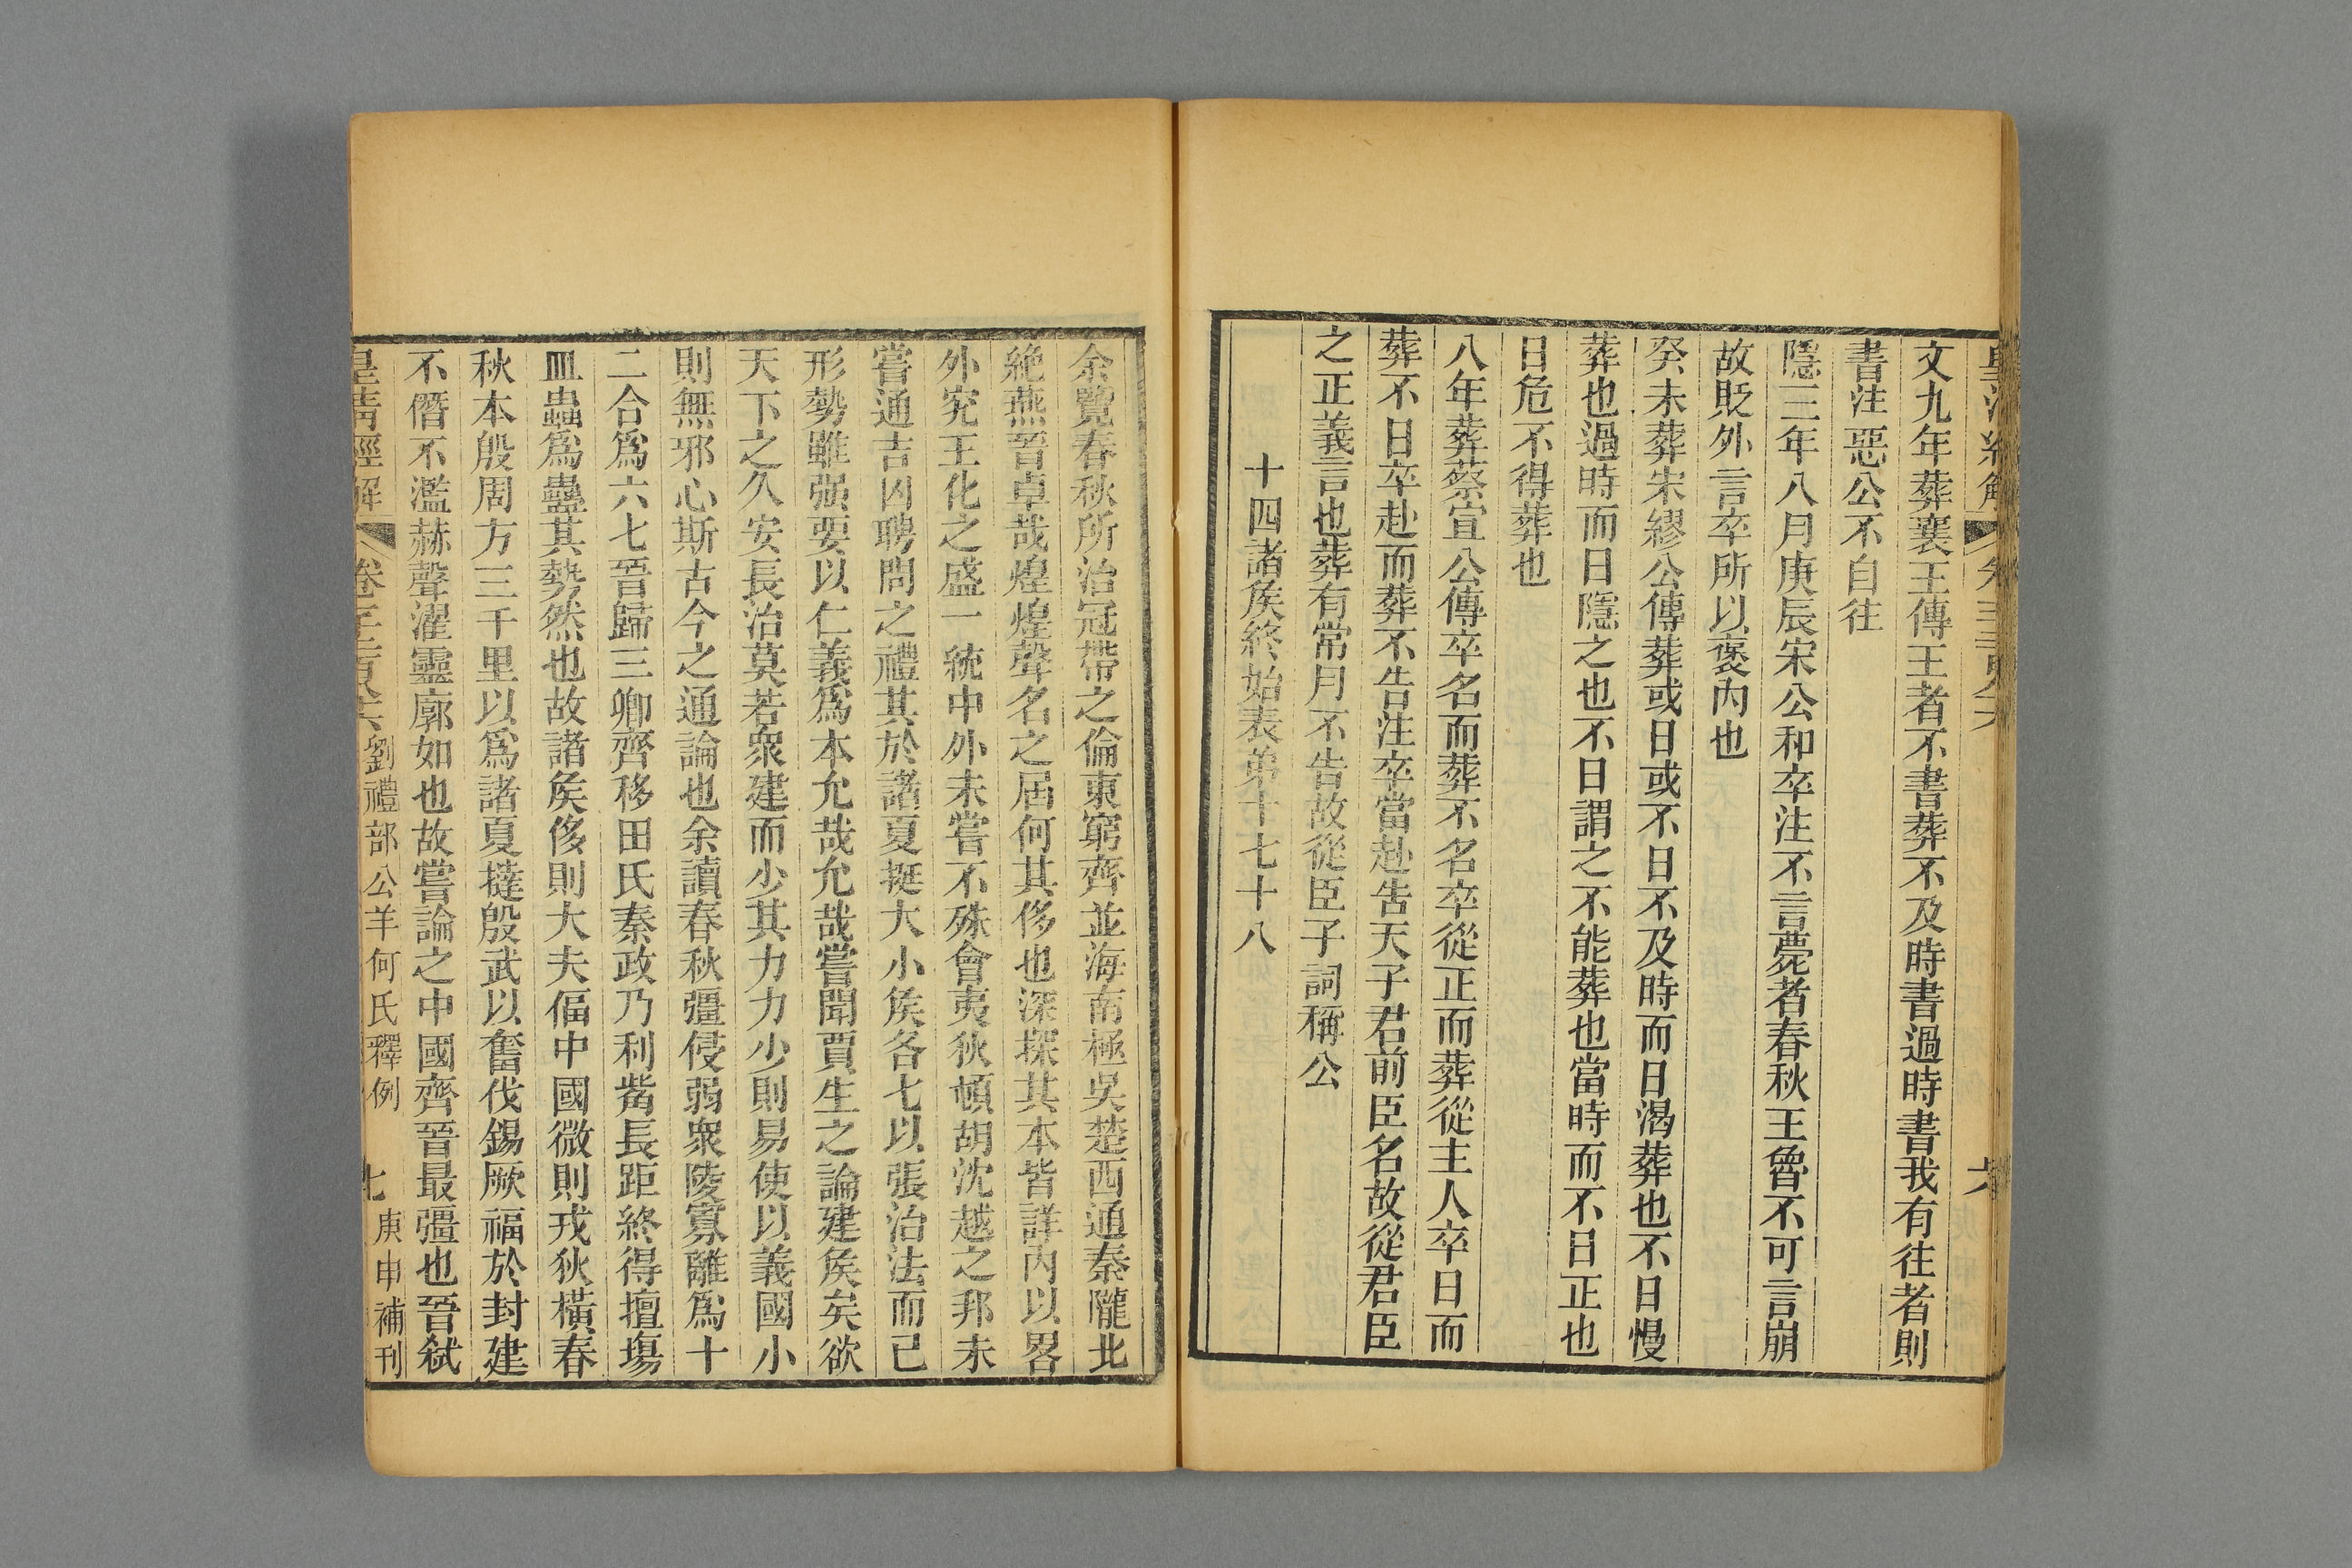 文九年葬襄王傳王者不書葬不及時書過時書我有往者則
書注惡公不自往
隱三年八月庚辰宋公和卒注不言薨者春秋王魯不可言崩
故貶外言卒所以襃內也
癸未葬宋繆公傳葬或日或不日不及時而日渴葬也不日慢
葬也過時而日隱之也不日謂之不能葬也當時而不日正也
日危不得葬也
八年葬蔡宣公傳卒名而葬不名卒從正而葬從主人卒日而
葬不日卒赴而葬不告注卒當赴告天子君前臣名故從君臣
之正義言也葬有常月不告故從臣子詞稱公
十四諸矦終始表弟十七十八
余覽春秋所治冠帶之倫東窮齊並海南極吳楚西通秦隴北
絶燕晉卓哉煌煌聲名之届何其侈也深探其本皆詳內以畧
外究王化之盛一統中外未嘗不殊會夷狄頓胡沈越之邦未
嘗通吉凶聘問之禮其於諸夏挺大小矦各七以張治法而已
形勢雖强要以仁義爲本允哉允哉嘗聞賈生之論建矦矣欲
天下之久安長治莫若衆建而少其力力少則易使以義國小
則無邪心斯古今之通論也余讀春秋彊侵弱衆陵寡離爲十
二合爲六七晉歸三卿齊移田氏秦政乃利觜長距終得擅場
皿蟲爲蠱其勢然也故諸矦侈則大夫偪中國微則戎狄橫春
秋本殷周方三千里以爲諸夏撻殷武以奮伐錫厥福於封建
不僭不濫赫聲濯靈廓如也故嘗論之中國齊晉最彊也晉弑
皇清經解 卷 劉禮部公羊何氏釋例 七 庚申補刊